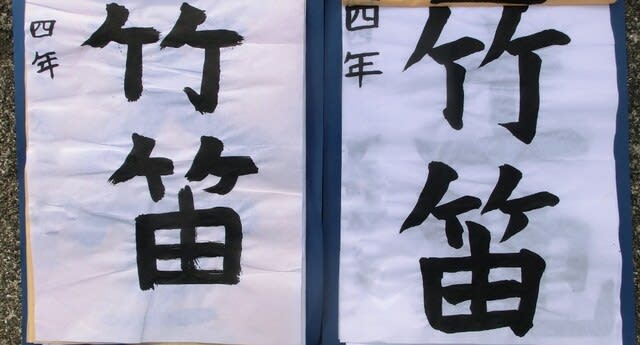 四年
竹笛
四年
竹笛